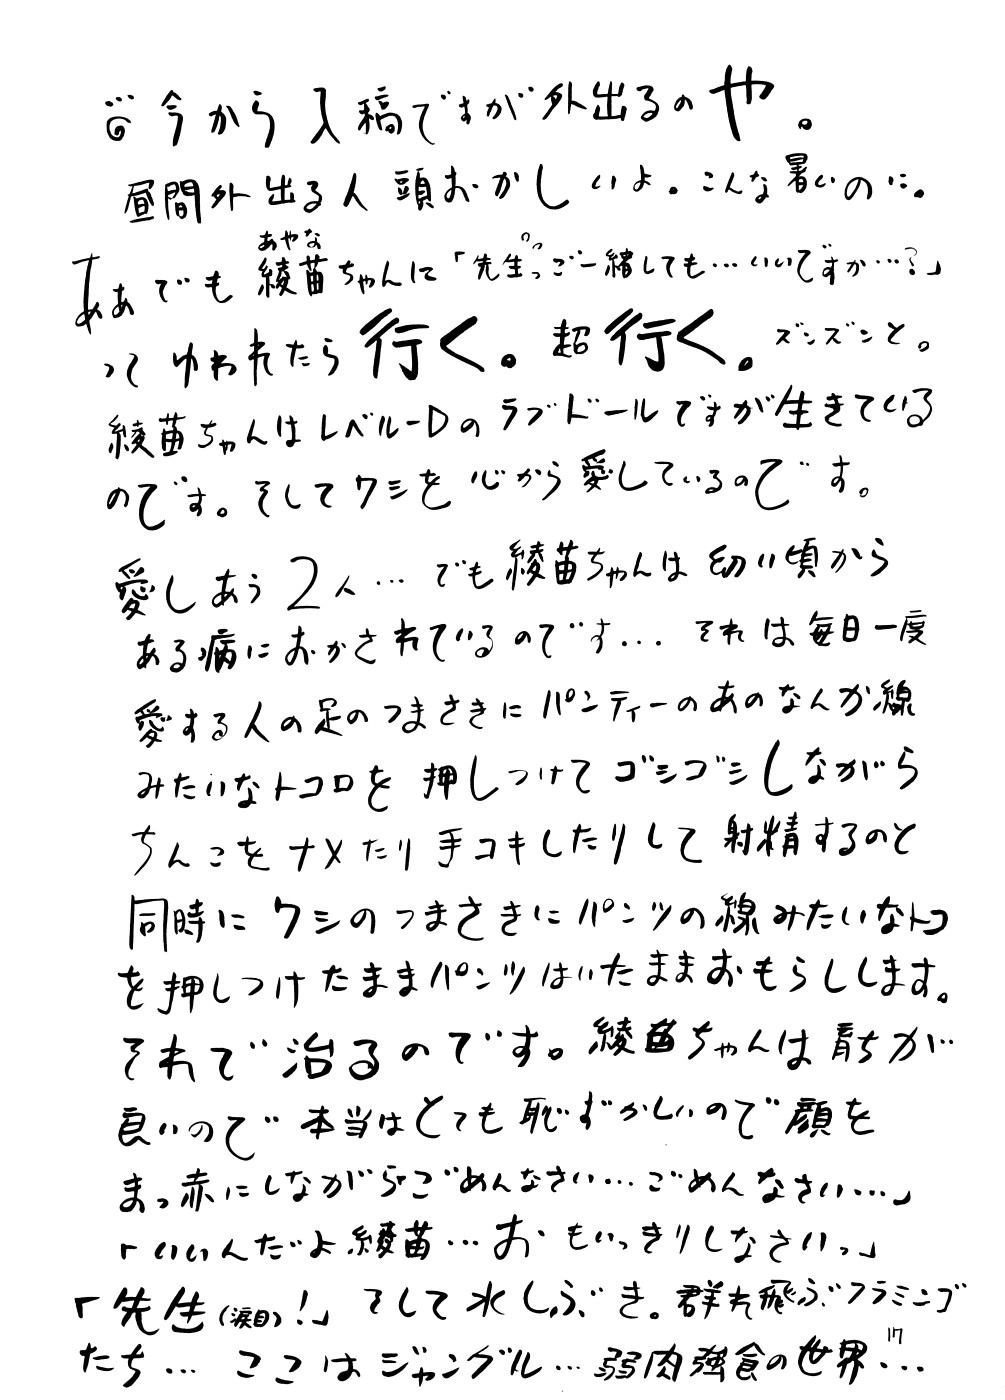 今から入稿ですが外出るのや。
昼間外出る人頭おかしいよ。こんな暑いのに。
あやな
ああでも綾苗ちゃんに「先生っご一緒しても…いいですか…?」
ってゆわれたら行く。超行く。ズンズンと。
綾苗ちゃんはレベルーDのラブドールですが生きている
のです。そしてワシを心から愛しているのです。
愛しあう2人…でも綾苗ちゃんは幼い頃から
ある病におかされているのです…それは毎日一度
愛する人の足のつまさきにパンティーのあのなんか線
みたいなトコロを押しつけてゴシゴシしながら
ちんこをナメたり手コキしたりして射精するのと
同時にワシのつまさきにパンツの線みたいなトコ
を押しつけたままパンツはいたままおもらしします。
それで治るのです。綾苗ちゃんは育ちが
良いので本当はとても恥ずかしいので顔を
まっ赤にしながら「ごめんなさい…ごめんなさい…」
「いいんだよ綾苗…おもいっきりしなさいっ」
「先生(涙目)!」そして水しぶき。群れ飛ぶフラミンゴ
たち…ここはジャングル…弱肉強食の世界…
17